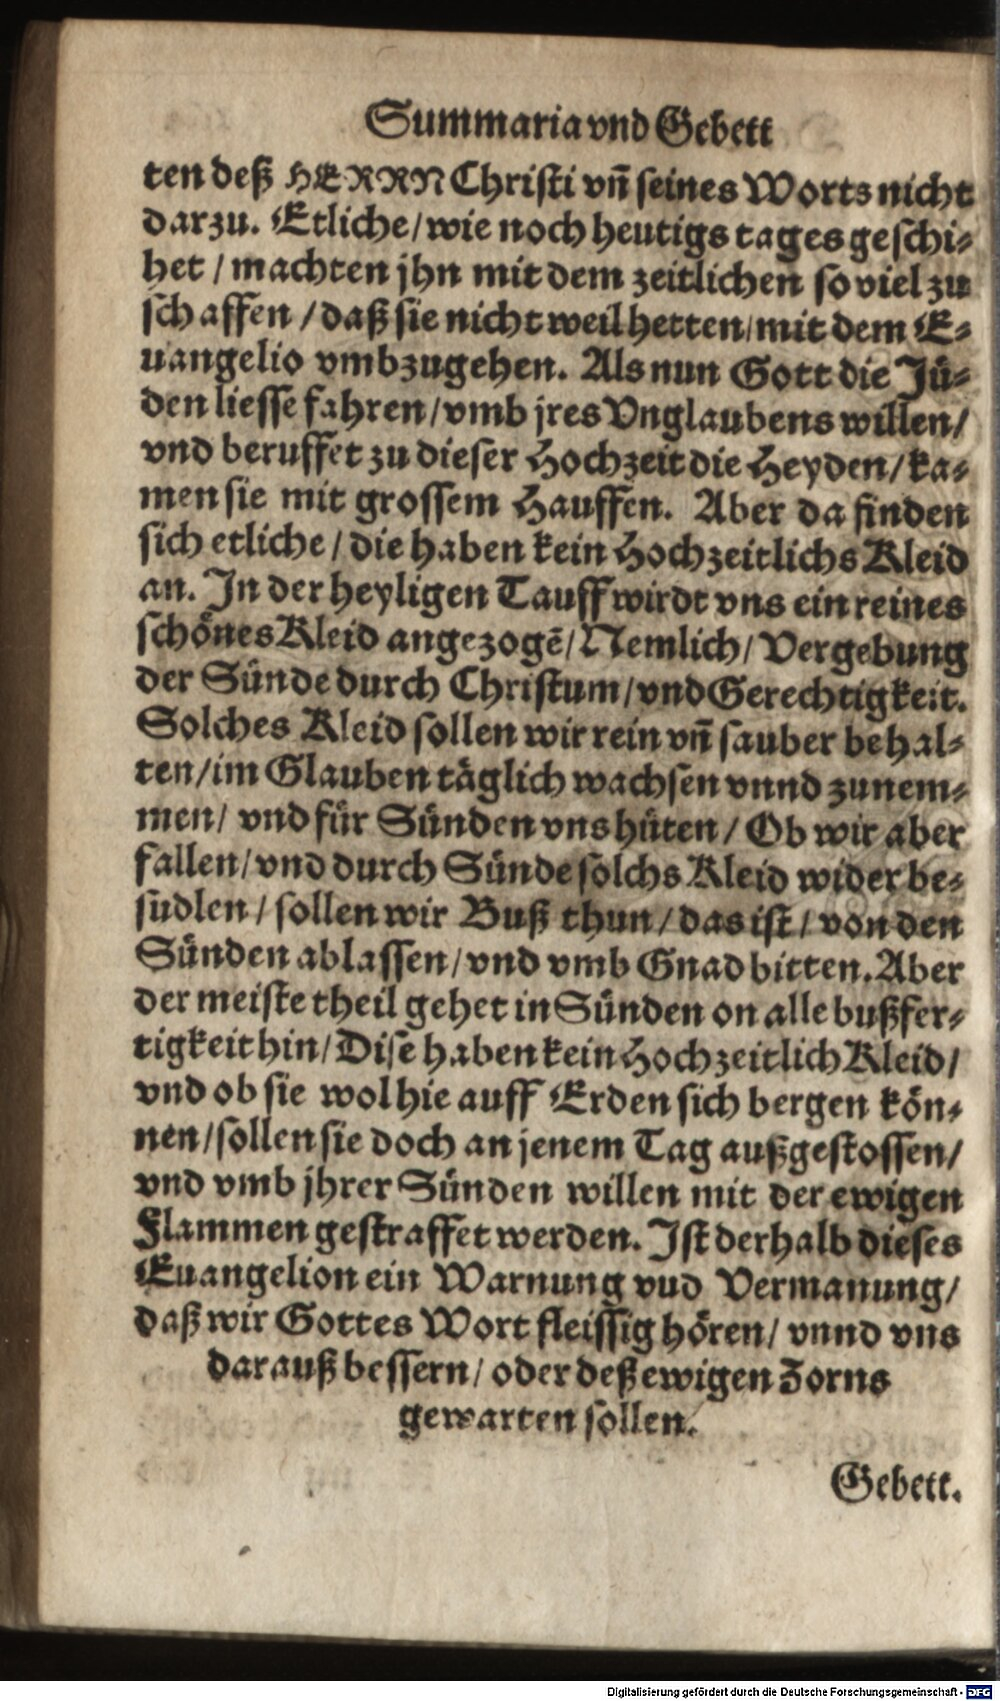 Summaria vnd Gebett
ten deß HERRN Christi vñ seines Worts nicht
darzu. Etliche/ wie noch heutigs tages geschi-
het / machten jhn mit dem zeitlichen so viel zu
schaffen / daß sie nicht weil hetten/ mit dem E-
uangelio vmbzugehen. Als nun Gott die Jü-
den liesse fahren/ vmb jres Vnglaubens willen/
vnd beruffet zu dieser Hochzeit die Heyden/ ka-
men sie mit grossem Hauffen. Aber da finden
sich etliche / die haben kein Hochzeitlichs Kleid
an. In der heyligen Tauff wirdt vns ein reines
schönes Kleid angezogẽ/ Nemlich/ Vergebung
der Sünde durch Christum/ vnd Gerechtigkeit.
Solches Kleid sollen wir rein vñ sauber behal-
ten/ im Glauben täglich wachsen vnnd zunem-
men/ vnd für Sünden vns hüten/ Ob wir aber
fallen/ vnd durch Sünde solchs Kleid wider be-
sudlen / sollen wir Buß thun / das ist / von den
Sünden ablassen/ vnd vmb Gnad bitten. Aber
der meiste theil gehet in Sünden on alle bußfer-
tigkeit hin/ Dise haben kein Hochzeitlich Kleid/
vnd ob sie wol hie auff Erden sich bergen kön-
nen/ sollen sie doch an jenem Tag außgestossen/
vnd vmb jhrer Sünden willen mit der ewigen
Flammen gestraffet werden. Ist derhalb dieses
Euangelion ein Warnung vud Vermanung/
daß wir Gottes Wort fleissig hören/ vnnd vns
darauß bessern/ oder deß ewigen Zorns
gewarten sollen.
Gebett.
Digitalisierung gefördert durch die Deutsche Forschungsgemeinschaft - DFG